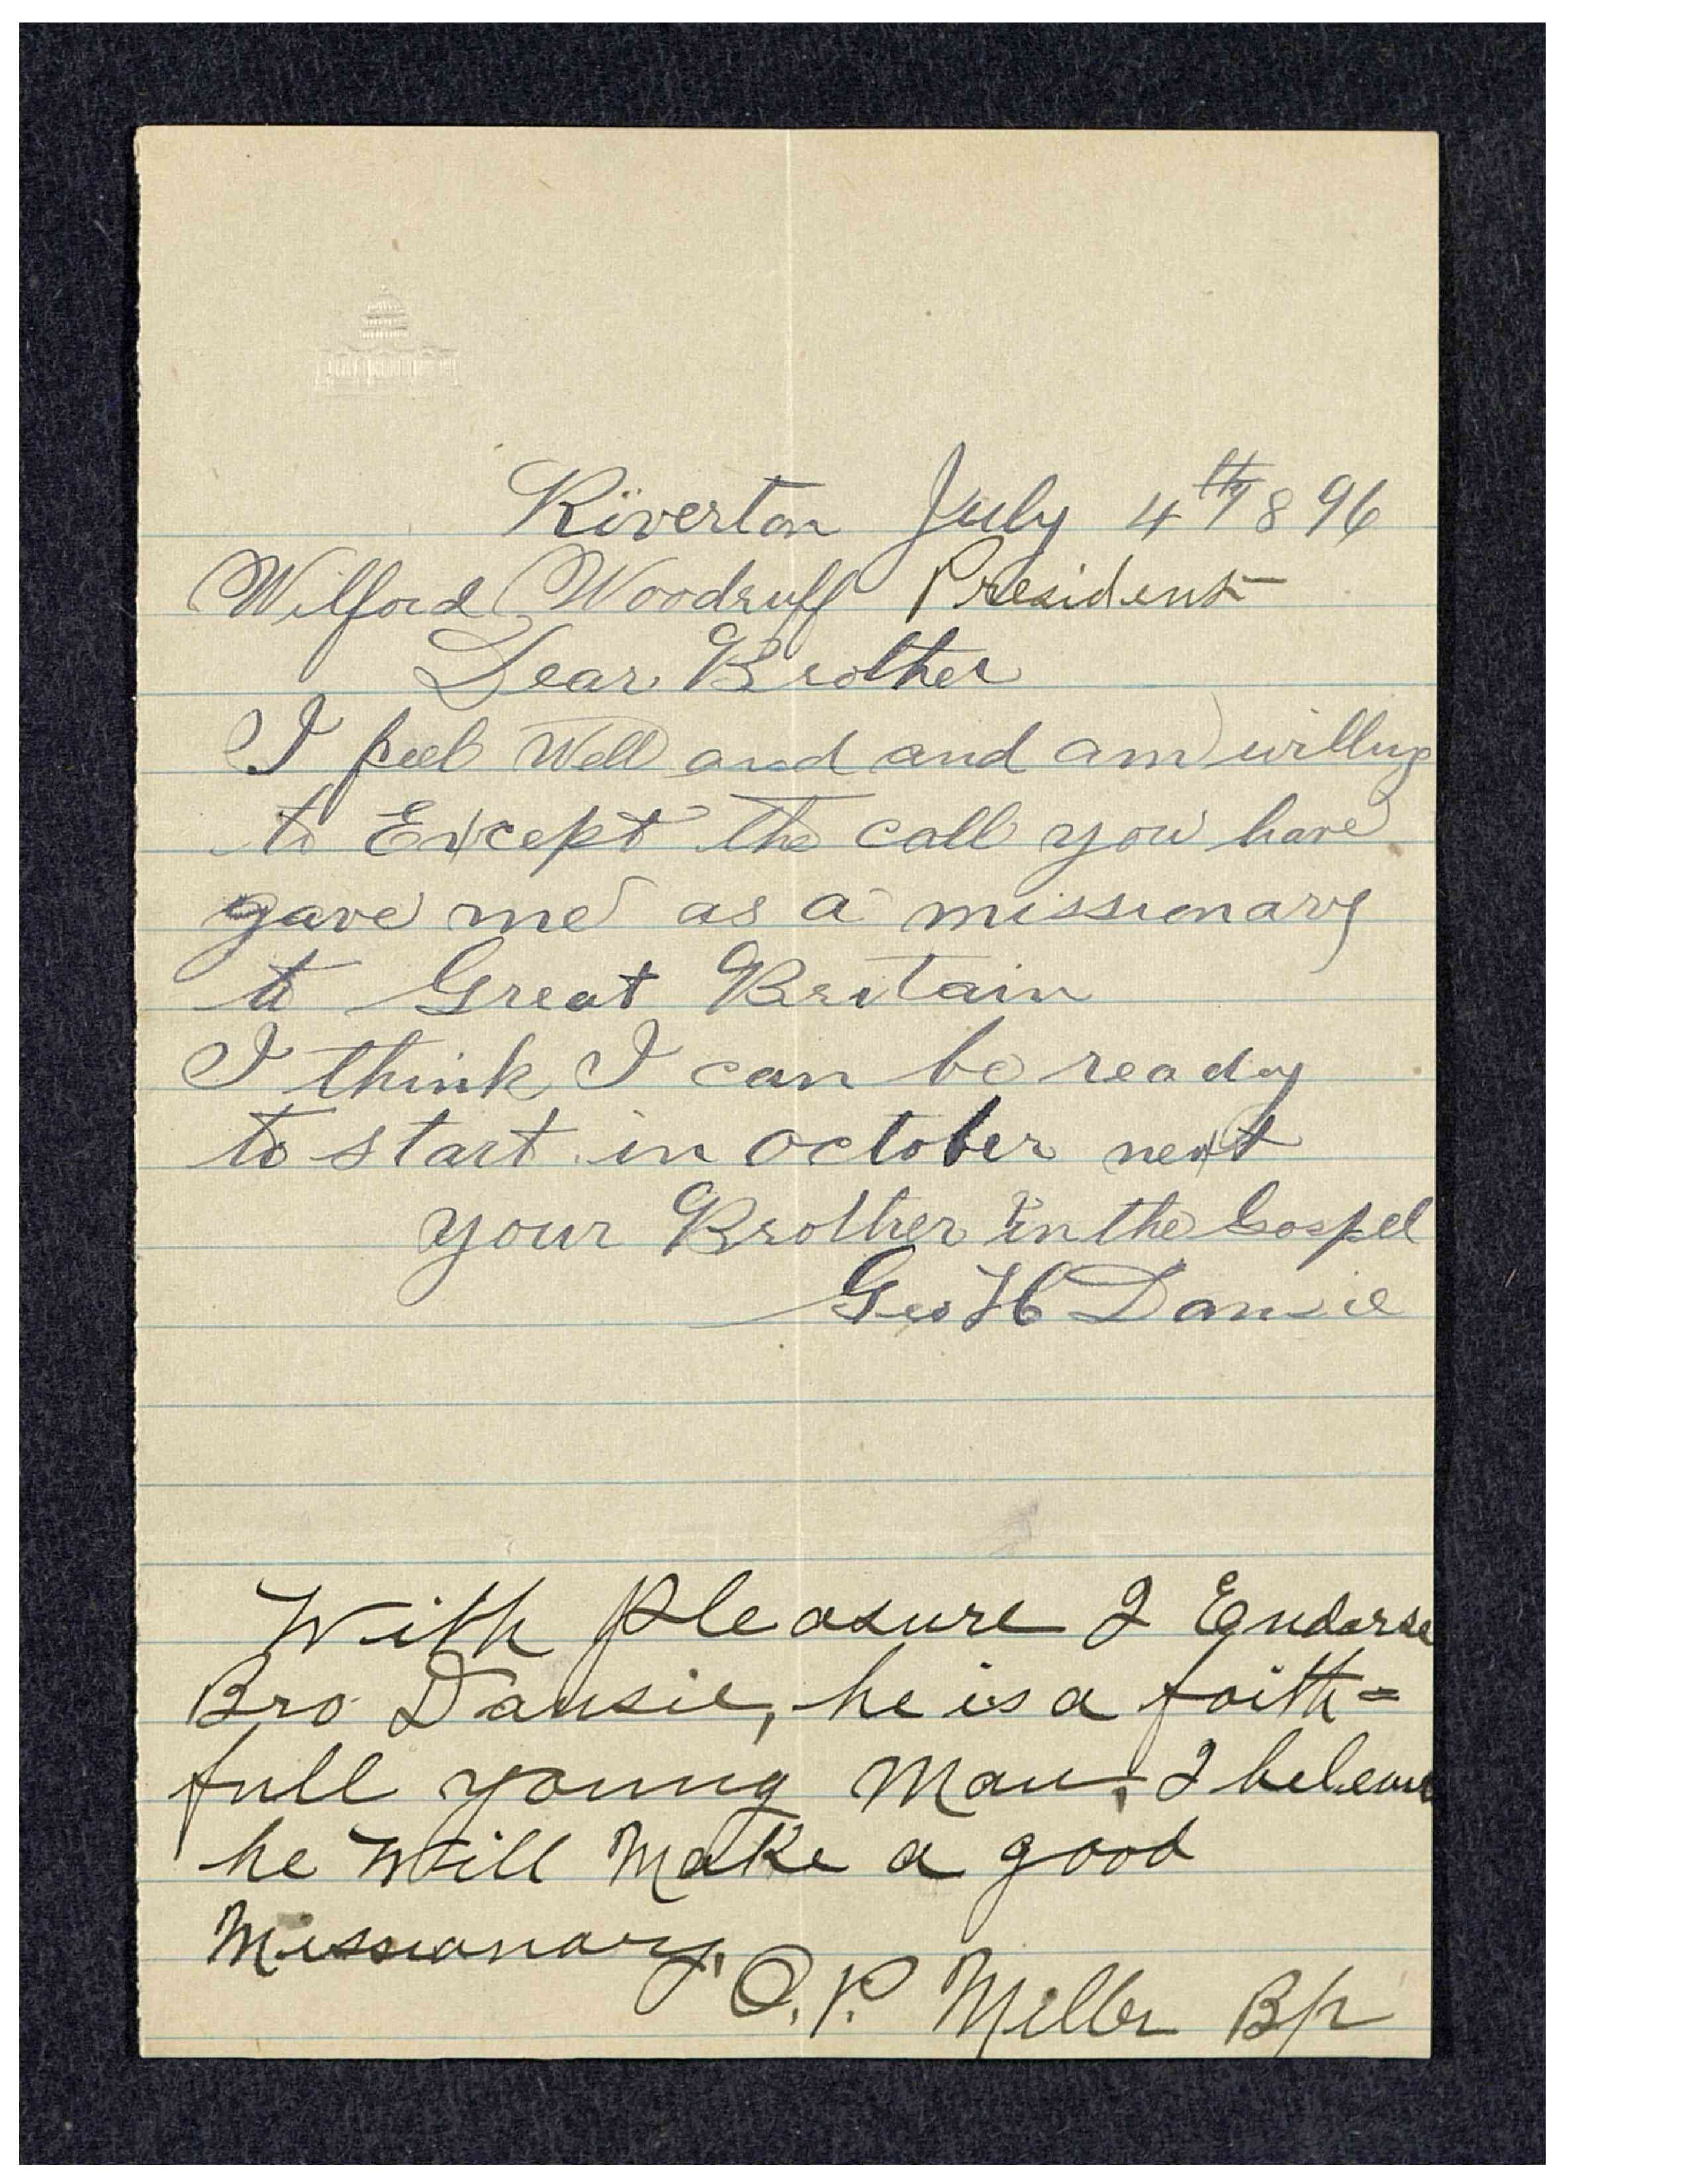 Riverton July 4th 1896
Wilford Woodruff President
Dear Brother
I feel Well and and am willing
to Except the call you have
gave me as a missionary
to Great Britain
I think I can be ready
to start in october next
your Brother in the Gospel
Geo H Dansie
With pleasure I Endorse
Bro Dansie, he is a faith=
full young Man, I beleave
he Will Make a good
Missionary.
O. P. Miller Bp